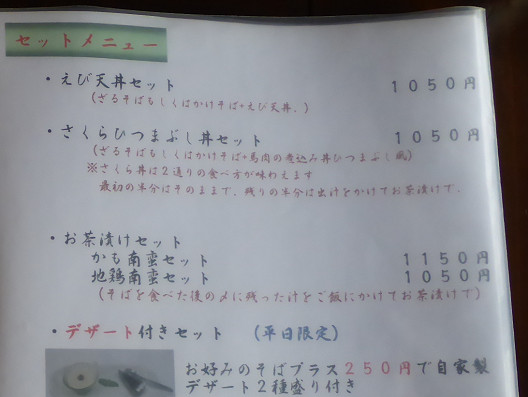 セットメニュー
・えび天丼セット １０５０円
(ざるそばもしくはかけそば+えび天丼。)
・さくらひつまぶし丼セット １０５０円
(ざるそばもしくはかけそば+馬肉の煮込み丼ひつまぶし風)
※さくら丼は２通りの食べ方が味わえます
最初の半分はそのままで、残りの半分は出汁をかけてお茶漬けで。
・お茶漬けセット
かも南蛮セット １１５０円
地鶏南蛮セット １０５０円
(そばを食べた後の〆に残った汁をご飯にかけてお茶漬けで)
・デザート付きセット (平日限定)
お好みのそばプラス２５０円で自家製
デザート２種盛り付き